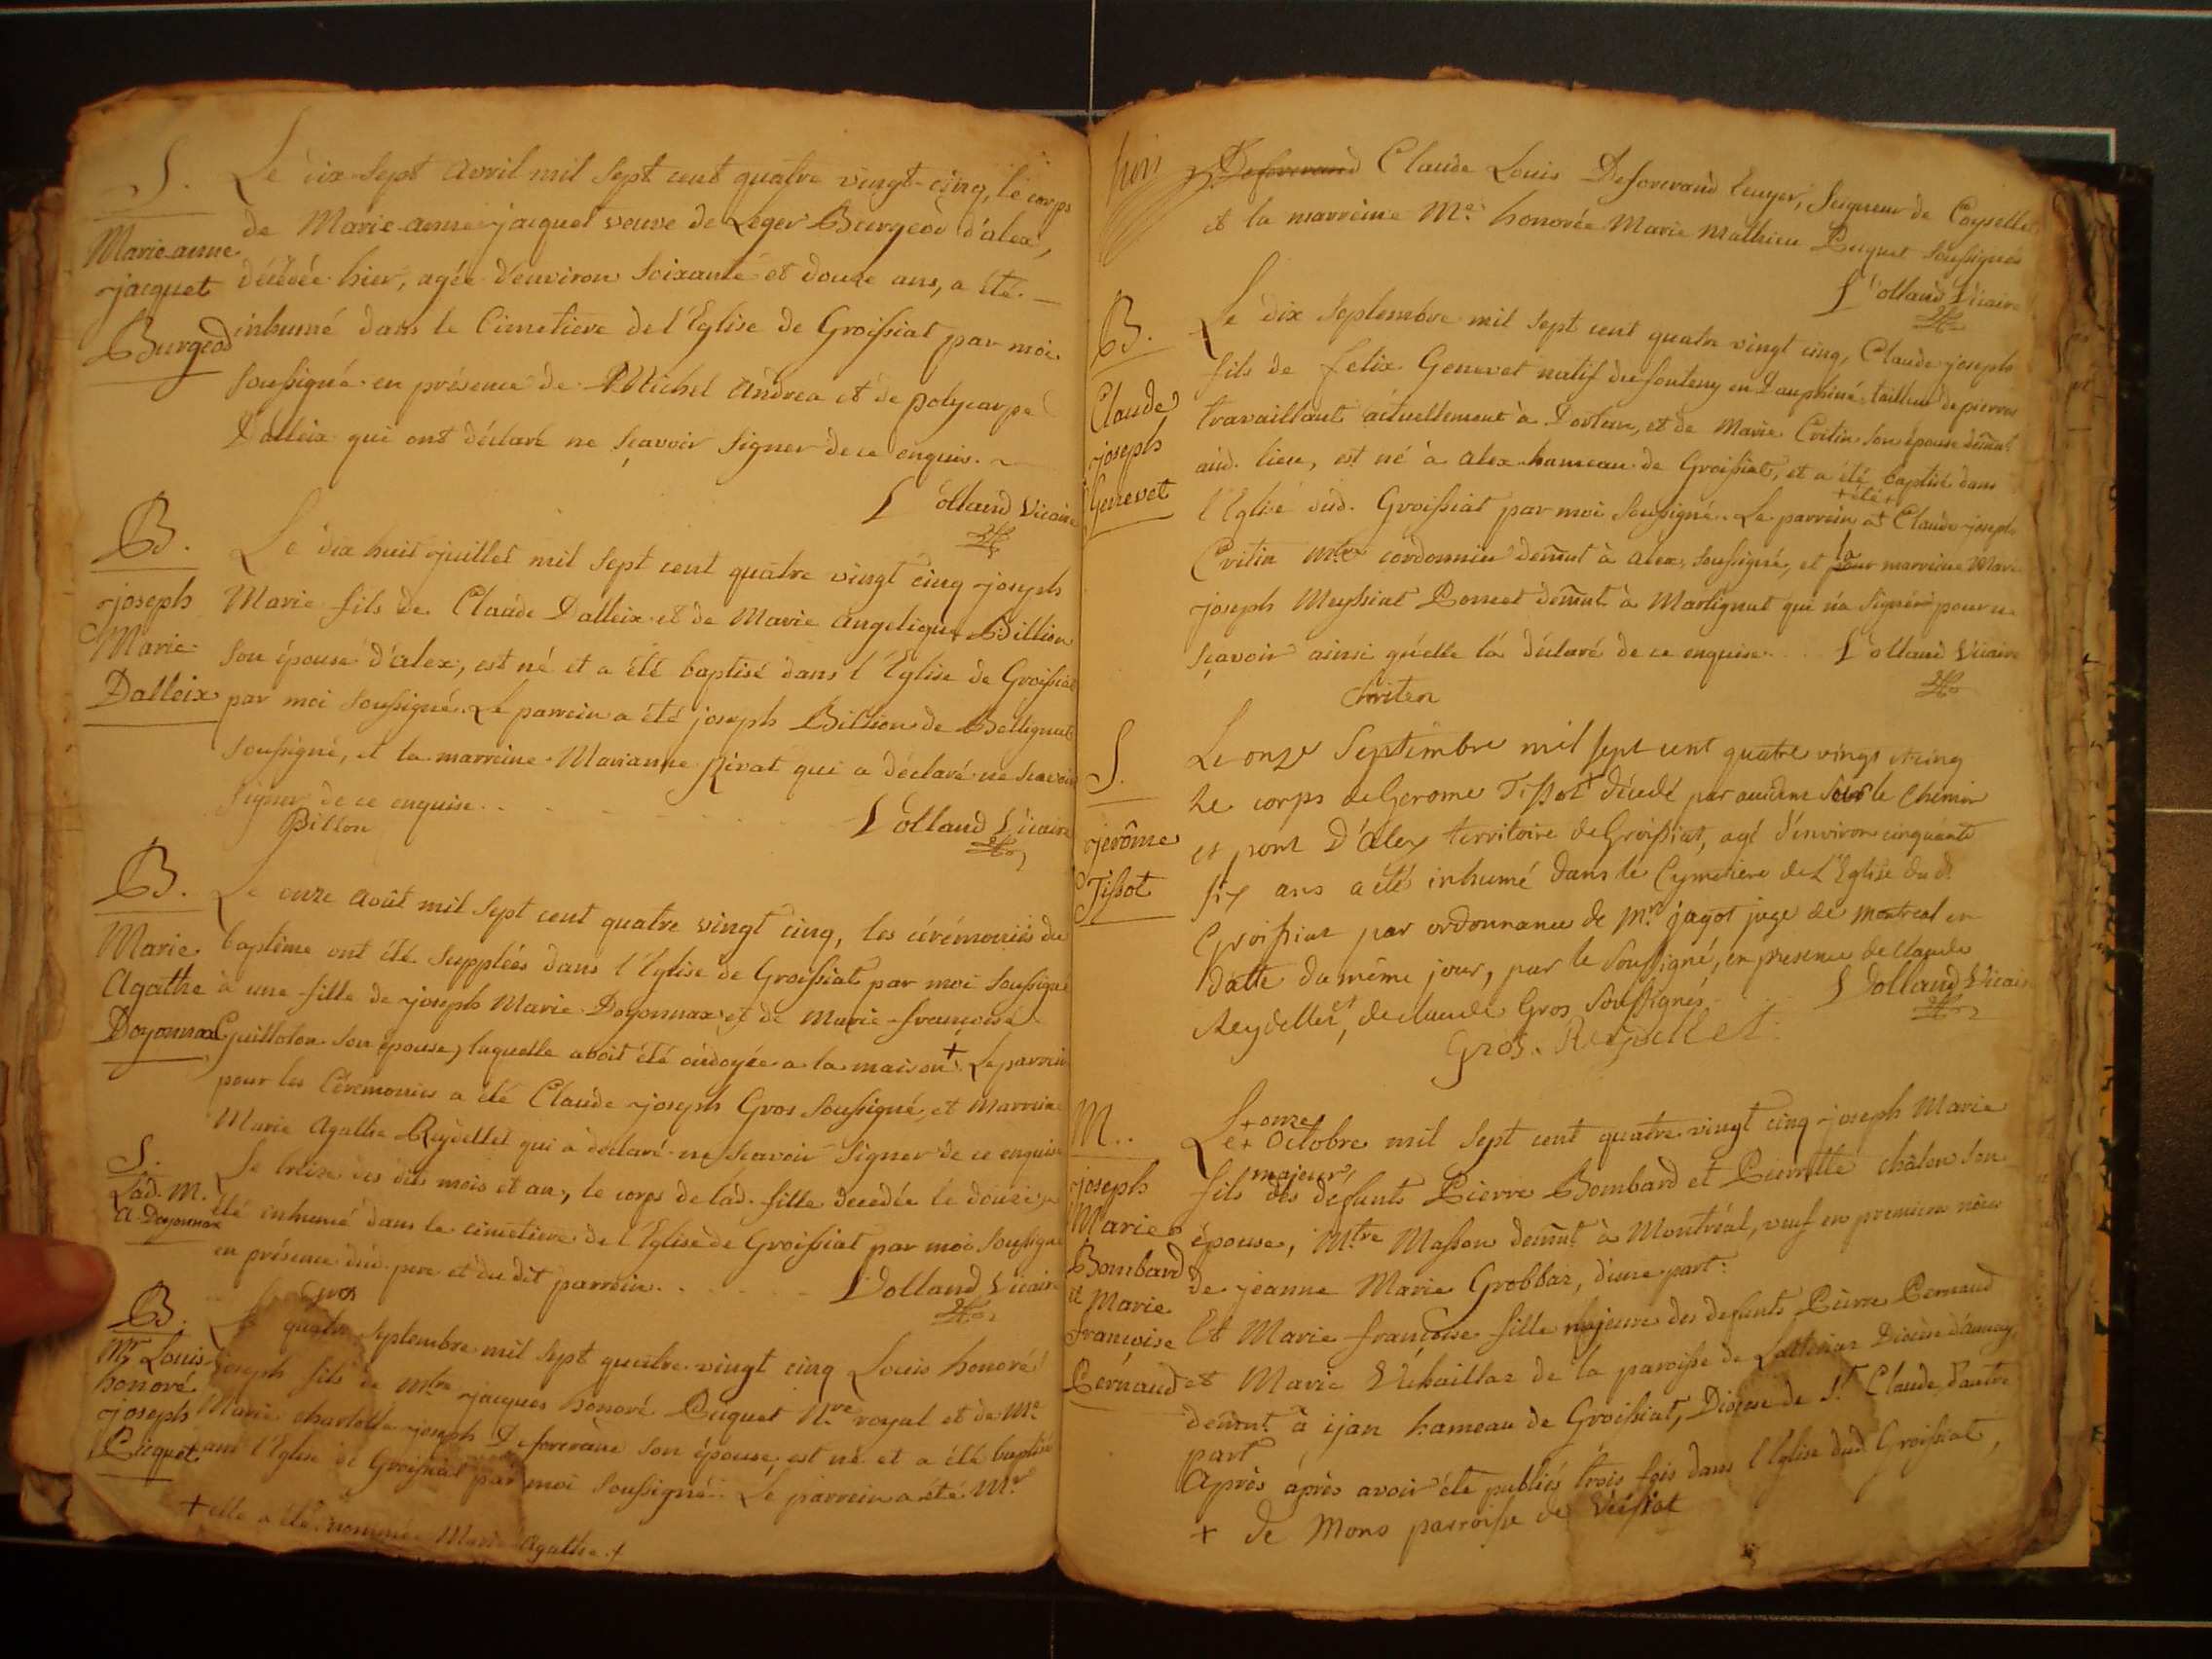 S.
Marie-anne
jacquet
Burgeod
Le dix-sept avril mil sept cent quatre vingt-cinq, le corps
de Marie-anne jacquet veuve de Leger Bourgeod d'alex,
décédée hier, agée d'environ soixante et douze ans, a été
inhumé dans le Cimetiere de l'Eglise de Groissiat par moi
soussigné en présence de Michel Andrea et de polycarpe
Dalleix qui ont déclaré ne sçavoir signer de ce enquis.
Dolland Vicaire
B.
joseph
Marie
Dalleix
Le dix huit juillet mil sept cent quatre vingt cinq joseph
Marie fils de Claude Dalleix et de Marie angelique Billion
son épouse d'alex, est né et a été baptisé dans l'Eglise de Groissiat
par moi soussigné. Le parrein a été joseph Billion de Bellignat
soussigné, et la marreine Marianne Rivat qui a déclaré ne scavoir
signer de ce enquise.
Billon
Dolland Vicaire
B.
Marie
Agathe
Doyonnax
Le onze Août mil sept cent quatre vingt cinq, les cérémonies du
baptême ont été suppléés dans l'Eglise de Groissiat par moi soussigné
à une fille de joseph Marie Doyonnax et de Marie-françoise
Guilloton son épouse, laquelle avoit été ondoyée a la maison +. Le parrein
pour les Céremonies a été Claude joseph Gros soussigné, et Marreine
Marie Agathe Reydellet qui a déclaré ne scavoir signer de ce enquise
S.
Lad. M.
A Doyonnax
Le treize des dits mois et an, le corps de lad. fille decedée le douze a
été inhumé dans le cimetiere de l'Eglise de Groissiat par moi soussigné
en présence dud. pere et du dit parrein.
Gros
Dolland Vicaire
B.
Mr. Louis
honoré
joseph
Picquet
Le quatre septembre mil sept quatre-vingt cinq Louis honoré
joseph fils de Mtre jacques honoré Picquet Nre royal et de Me.
Marie charlotte joseph Deforcrand son épouse, est né et a été baptisé
dans l'Eglise de Groissiat par moi soussigné. Le parrein a été Mr
+ elle a été nommée Marie Agathe +
Deforcrand Claude Louis Deforcrand Ecuyer, Seigneur de Coyselet
et la marreine Me. honorée Marie Mathieu Picquet soussignés
Dolland Vicaire
B.
Claude
joseph
Genevet
Le dix septembre mil sept cent quatre vingt cinq, Claude joseph
fils de felix Genevet natif du fonteny en Dauphiné tailleur de pierres
travaillant actuellement à Dortan, et de Marie Critin son épouse demt.
aud. lieu, est né à alex hameau de Groissiat, et a été baptisé dans
l'Eglise dud. Groissiat par moi soussigné. Le parrein a +été+ Claude joseph
Critin mtre cordonnier demt à alex, soussigné, et pour la marreine Marie
joseph Meyssiat Poncet demt. à Martignat qui n'a signé pour ne
sçavoir ainsi qu'elle l'a déclaré de ce enquise.
Dolland Vicaire
Criten
S.
jerôme
Tissot
Le onze Septembre mil sept cent quatre vings et cing
Le corps de Gerome Tissot + décedé par accident sur le Chemin
et pont D'alex territoire de Groissiat, agé d'environ cinquante
six ans a été inhumé dans le Cymetiere de L'Eglise dud.
Groissiat par ordonnance de Mr. jagot juge de Montreal en
datte du même jour, par le soussigné, en presence de Claude
Reydellet, et de claude Gros soussignés.
Dolland Vicaire
Gros. Reydellet.
M.
joseph
Marie
Bombard
et Marie
françoise
Pernaud
Le + onze + Octobre mil sept cent quatre-vingt cinq joseph Marie
fils majeur des defunts Pierre Bombard et Pierrette châlon son
épouse, Mtre Masson demt. à Montréal, veuf en premiere nôces
de jeanne Marie Grobbaz, d'une part:
Et Marie françoise fille majeure des defunts Pierre Pernaud
et Marie de la paroisse de Diocèse d'annecy,
demt. à ijan hameau de Groissiat, Diocese de St. Claude, d'autre
part
Après après avoir été publiés trois fois dans l'Eglise dud Groissiat,
+ de Mons parroisse de Veissiat